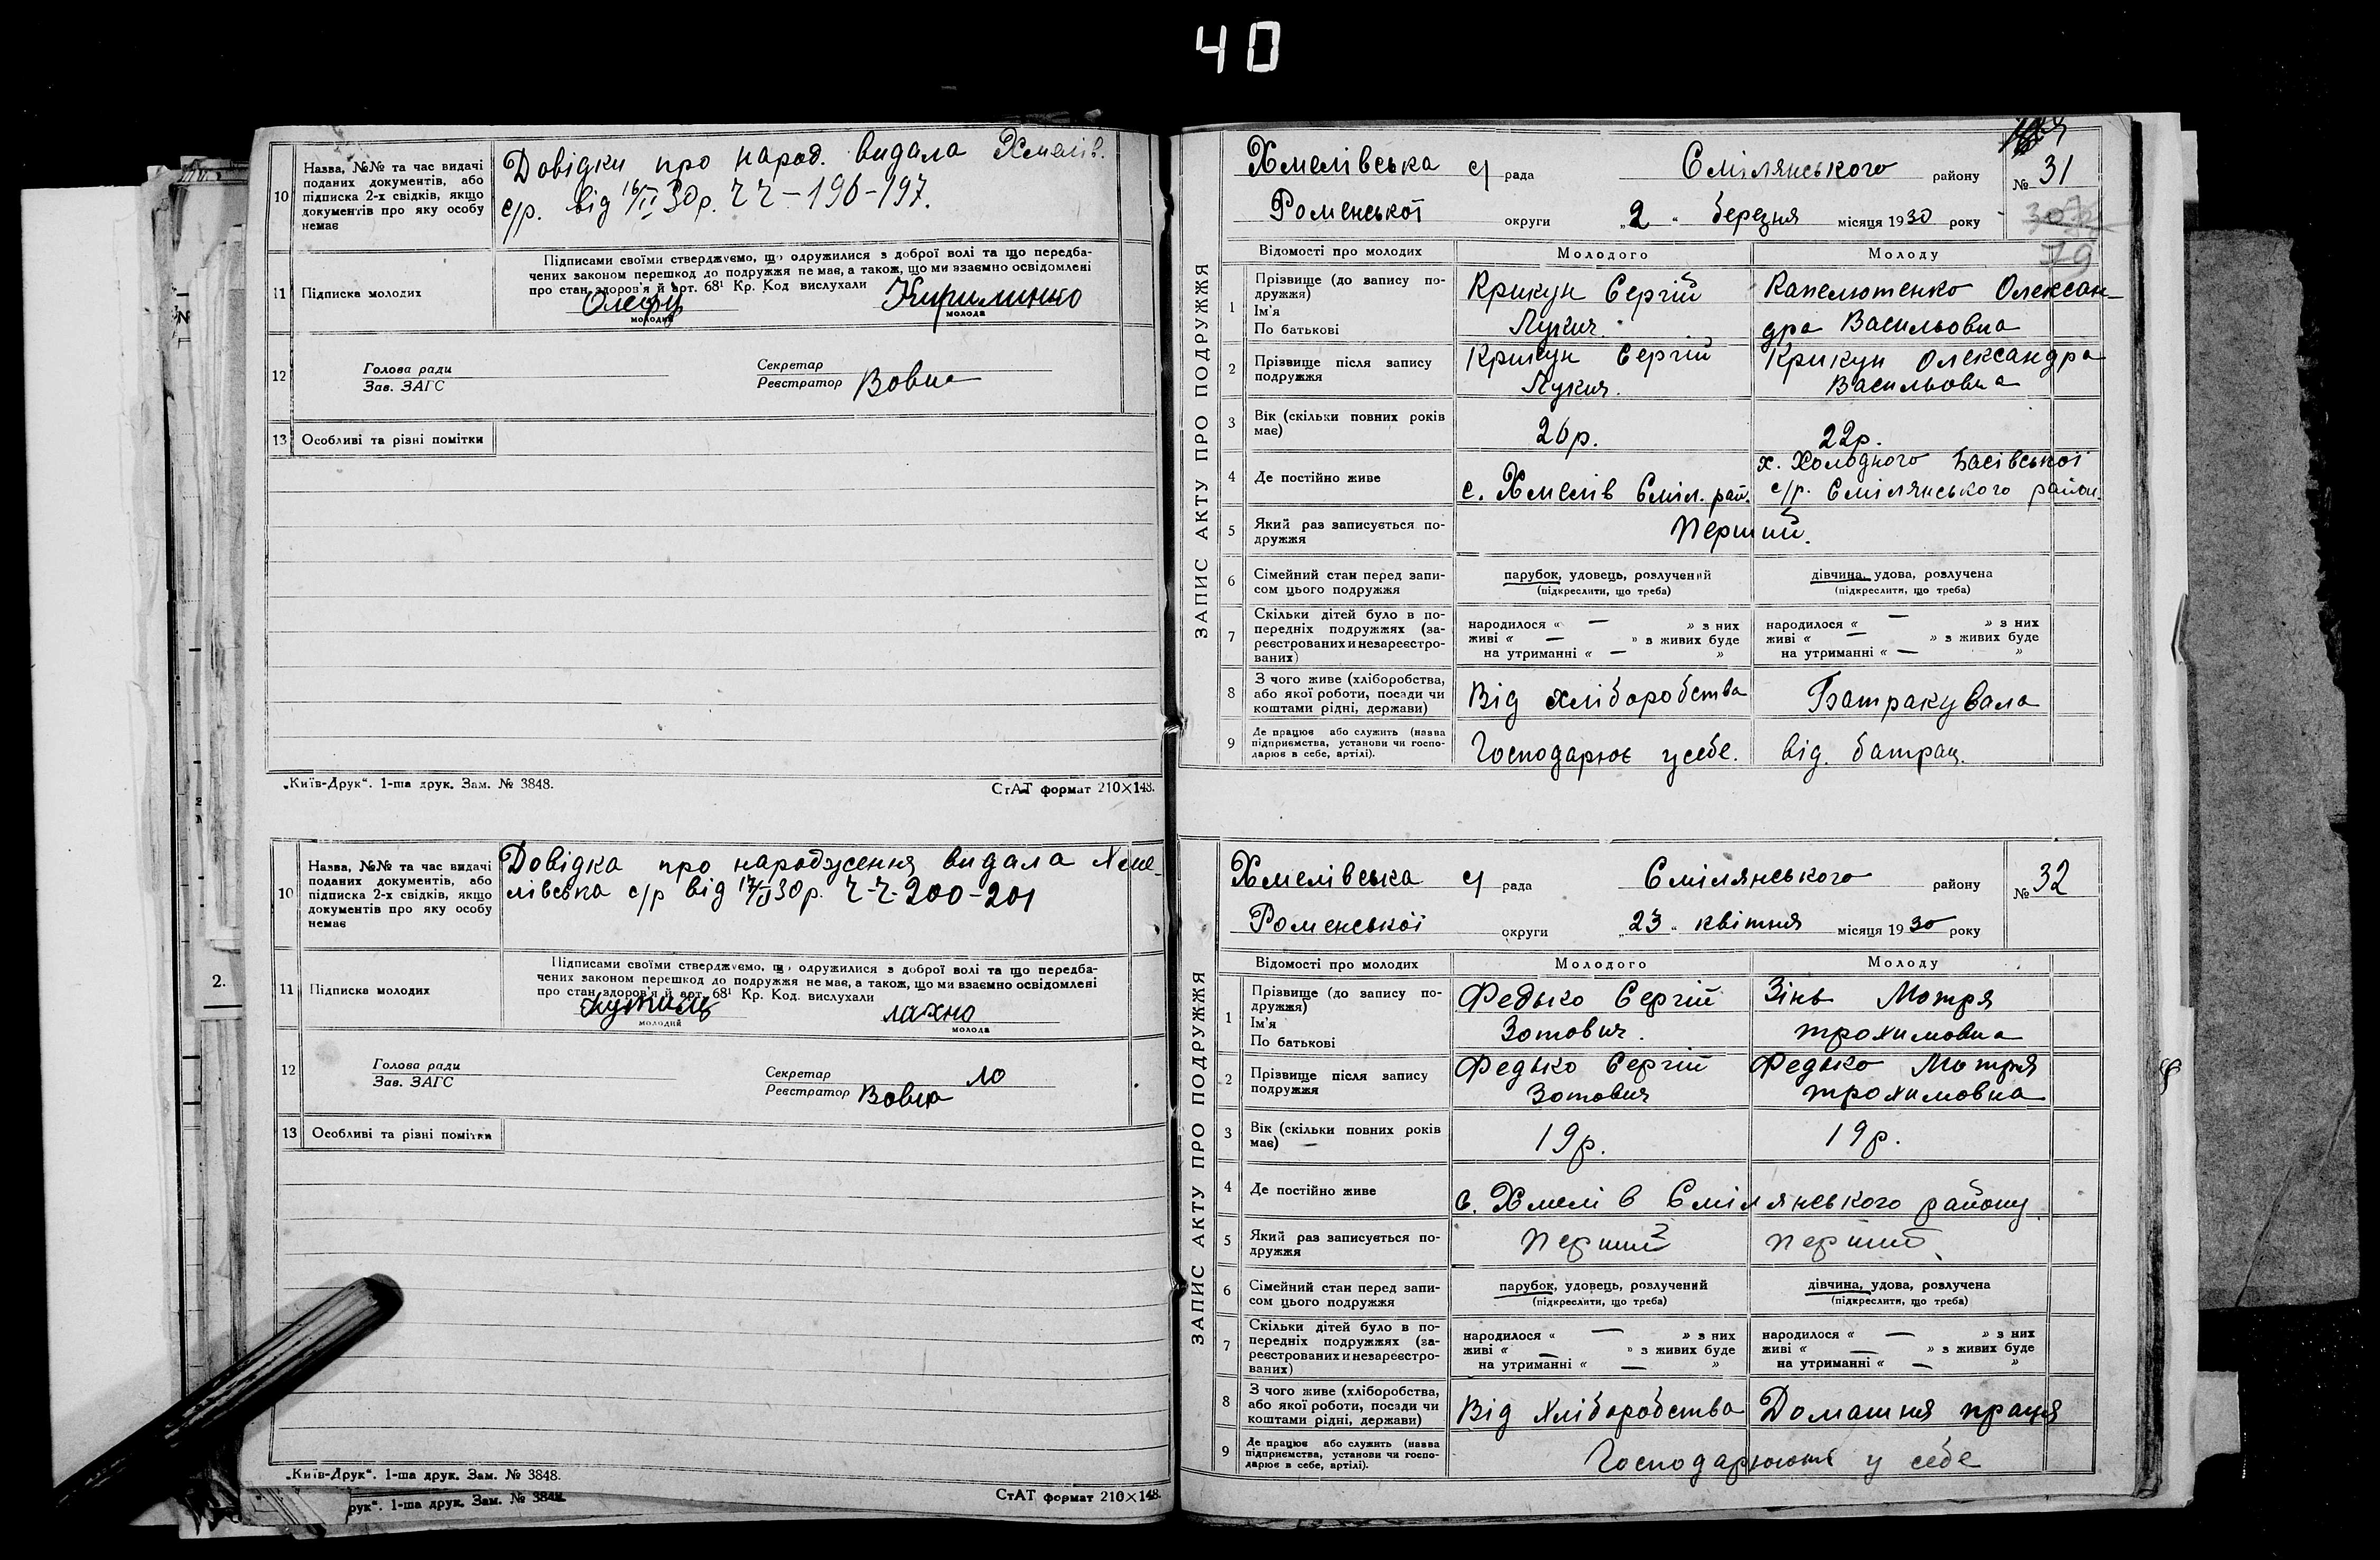 40
10
Назва, №№ та час видачі
поданих документів, або
підписка 2-х свідків, якщо
документів про яку особу
немає
Довідки про народ. видала Хмелів.
с/р. від 16/II 30р. ч ч – 196-197.
11
Підписка молодих
Підписами своїми стверджуємо, що одружилися з доброї волі та що передба-
чених законом перешкод до подружжя не має, а також, що ми взаємно освідомлені
про стан здоров'я й арт. 68¹ Кр. Код вислухали
Кириленко
молодий
молода
12
Голова ради
Зав. ЗАГС
Секретар
Реєстратор Вовна
13
Особливі та різні помітки
„Київ-Друк“. 1-ша друк. Зам. № 3848.
СтАТ формат 210×148.
10
Назва, №№ та час видачі
поданих документів, або
підписка 2-х свідків, якщо
документів про яку особу
немає
Довідка про народження видала Хме-
лівська с/р від 17/II 30р. ч-ч-200-201
11
Підписка молодих
Підписами своїми стверджуємо, що одружилися з доброї волі та що передба-
чених законом перешкод до подружжя не має, а також, що ми взаємно освідомлені
про стан здоров'я й арт. 68¹ Кр. Код. вислухали
лахно
молодий
молода
12
Голова ради
Зав. ЗАГС
Секретар
Реєстратор Вовна
13
Особливі та різні помітки
„Київ-Друк“. 1-ша друк. Зам. № 3848.
СтАТ формат 210×148.
рук“. 1-ша друк. Зам. № 3848.
2.
ЗАПИС АКТУ ПРО ПОДРУЖЖЯ
Хмелівська с/ рада Смілянського району
№ 31
Роменської округи „2“ березня місяця 1930 року
79
Відомості про молодих
Молодого
Молоду
1
Прізвище (до запису по-
дружжя)
Ім'я
По батькові
Крикун Сергій
Лукич.
Капелютенко Олексан-
дра Васильовна
2
Прізвище після запису
подружжя
Крикун Сергій
Лукич.
Крикун Олександра
Васильовна
3
Вік (скільки повних років
має)
26р.
22р.
4
Де постійно живе
с. Хмелів Сміл. рай.
х. Холодного Басівської
с/р. Смілянського район.
5
Який раз записується по-
дружжя
Перший.
6
Сімейний стан перед запи-
сом цього подружжя
парубок, удовець, розлучений
(підкреслити, що треба)
дівчина, удова, розлучена
(підкреслити, що треба)
7
Скільки дітей було в по-
передніх подружжях (за-
реєстрованих и незареєстро-
ваних)
народилося « — » з них
живі « — » з живих буде
на утриманні « — »
народилося « — » з них
живі « — » з живих буде
на утриманні « — »
8
З чого живе (хліборобства,
або якої роботи, посади чи
коштами рідні, держави)
Від хліборобства
Батракувала
9
Де працює або служить (назва
підприємства, установи чи госпо-
дарює в себе, артілі).
Господарює у себе.
від. батрац.
ЗАПИС АКТУ ПРО ПОДРУЖЖЯ
Хмелівська с/ рада Смілянського району
№ 32
Роменської округи „23“ квітня місяця 1930 року
Відомості про молодих
Молодого
Молоду
1
Прізвище (до запису по-
дружжя)
Ім'я
По батькові
Федько Сергій
Зотович.
Зінь Мотря
трохимовна
2
Прізвище після запису
подружжя
Федько Сергій
Зотович
Федько Мотря
трохимовна
3
Вік (скільки повних років
має)
19р.
19р.
4
Де постійно живе
с. Хмелів Смілянського району
5
Який раз записується по-
дружжя
перший
перший
6
Сімейний стан перед запи-
сом цього подружжя
парубок, удовець, розлучений
(підкреслити, що треба)
дівчина, удова, розлучена
(підкреслити, що треба)
7
Скільки дітей було в по-
передніх подружжях (за-
реєстрованих и незареєстро-
ваних)
народилося « — » з них
живі « — » з живих буде
на утриманні « — »
народилося « — » з них
живі « — » з живих буде
на утриманні « — »
8
З чого живе (хліборобства,
або якої роботи, посади чи
коштами рідні, держави)
Від хліборобства
Домашня праця
9
Де працює або служить (назва
підприємства, установи чи госпо-
дарює в себе, артілі).
Господарюють у себе